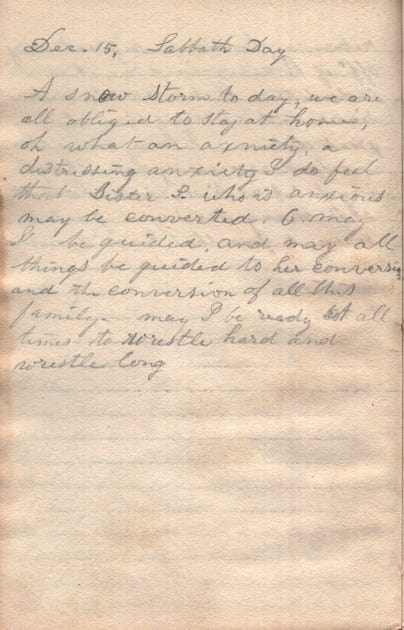 Dec. 15, Sabbath Day
A snow storm to day, we are
all obliged to stay at home,
oh what an axniety, a
distressing anxiety I do feel
that Sister S. who is anxious
may be converted. O may
I be guided, and may all
things be guided to her conversion
and the conversion of all this
family. may I be ready at all
times to wrestle hard and
wrestle long